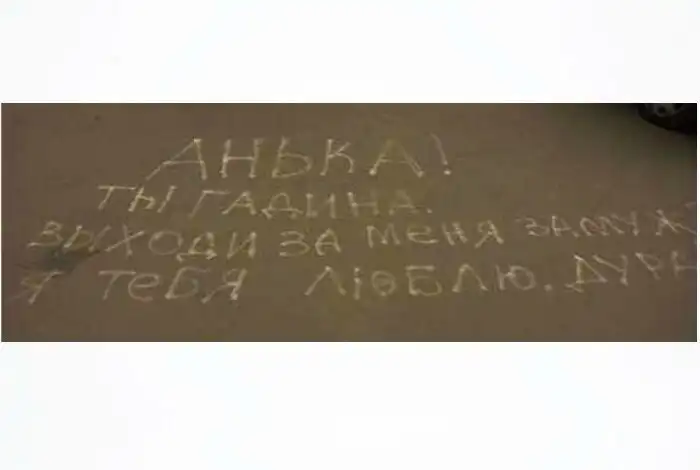 АНЬКА!
ТЫ ГАДИНА.
ВЫХОДИ ЗА МЕНЯ ЗАМУЖ
Я ТЕБЯ ЛЮБЛЮ. ДУРА